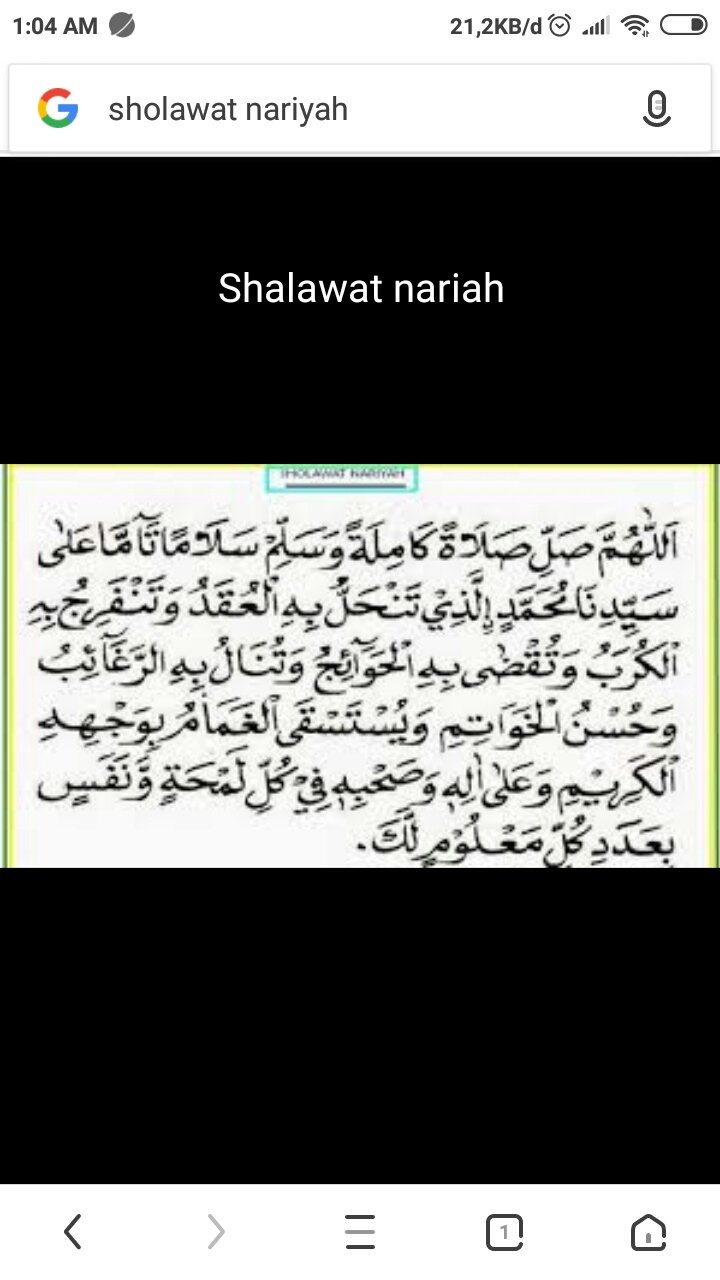 1:04 AM 21,2KB/d
sholawat nariyah
Shalawat nariah
SHOLAWAT NARIYAH
اَللّٰهُمَّ صَلِّ صَلَاةً كَامِلَةً وَسَلِّمْ سَلَامًا تَآمًّا عَلٰى
سَيِّدِنَا مُحَمَّدٍ ࣙالَّذِيْ تَنْحَلُّ بِهِ الْعُقَدُ وَتَنْفَرِجُ بِهِ
الْكُرَبُ وَتُقْضٰى بِهِ الْحَوَآئِجُ وَتُنَالُ بِهِ الرَّغَآئِبُ
وَحُسْنُ الْخَوَاتِمِ وَيُسْتَسْقَى الْغَمَامُ بِوَجْهِهِ
الْكَرِيْمِ وَعَلٰى اٰلِهٖ وَصَحْبِهٖ فِيْ كُلِّ لَمْحَةٍ وَّنَفَسٍ
بِعَدَدِ كُلِّ مَعْلُوْمٍ لَّكَ.
1